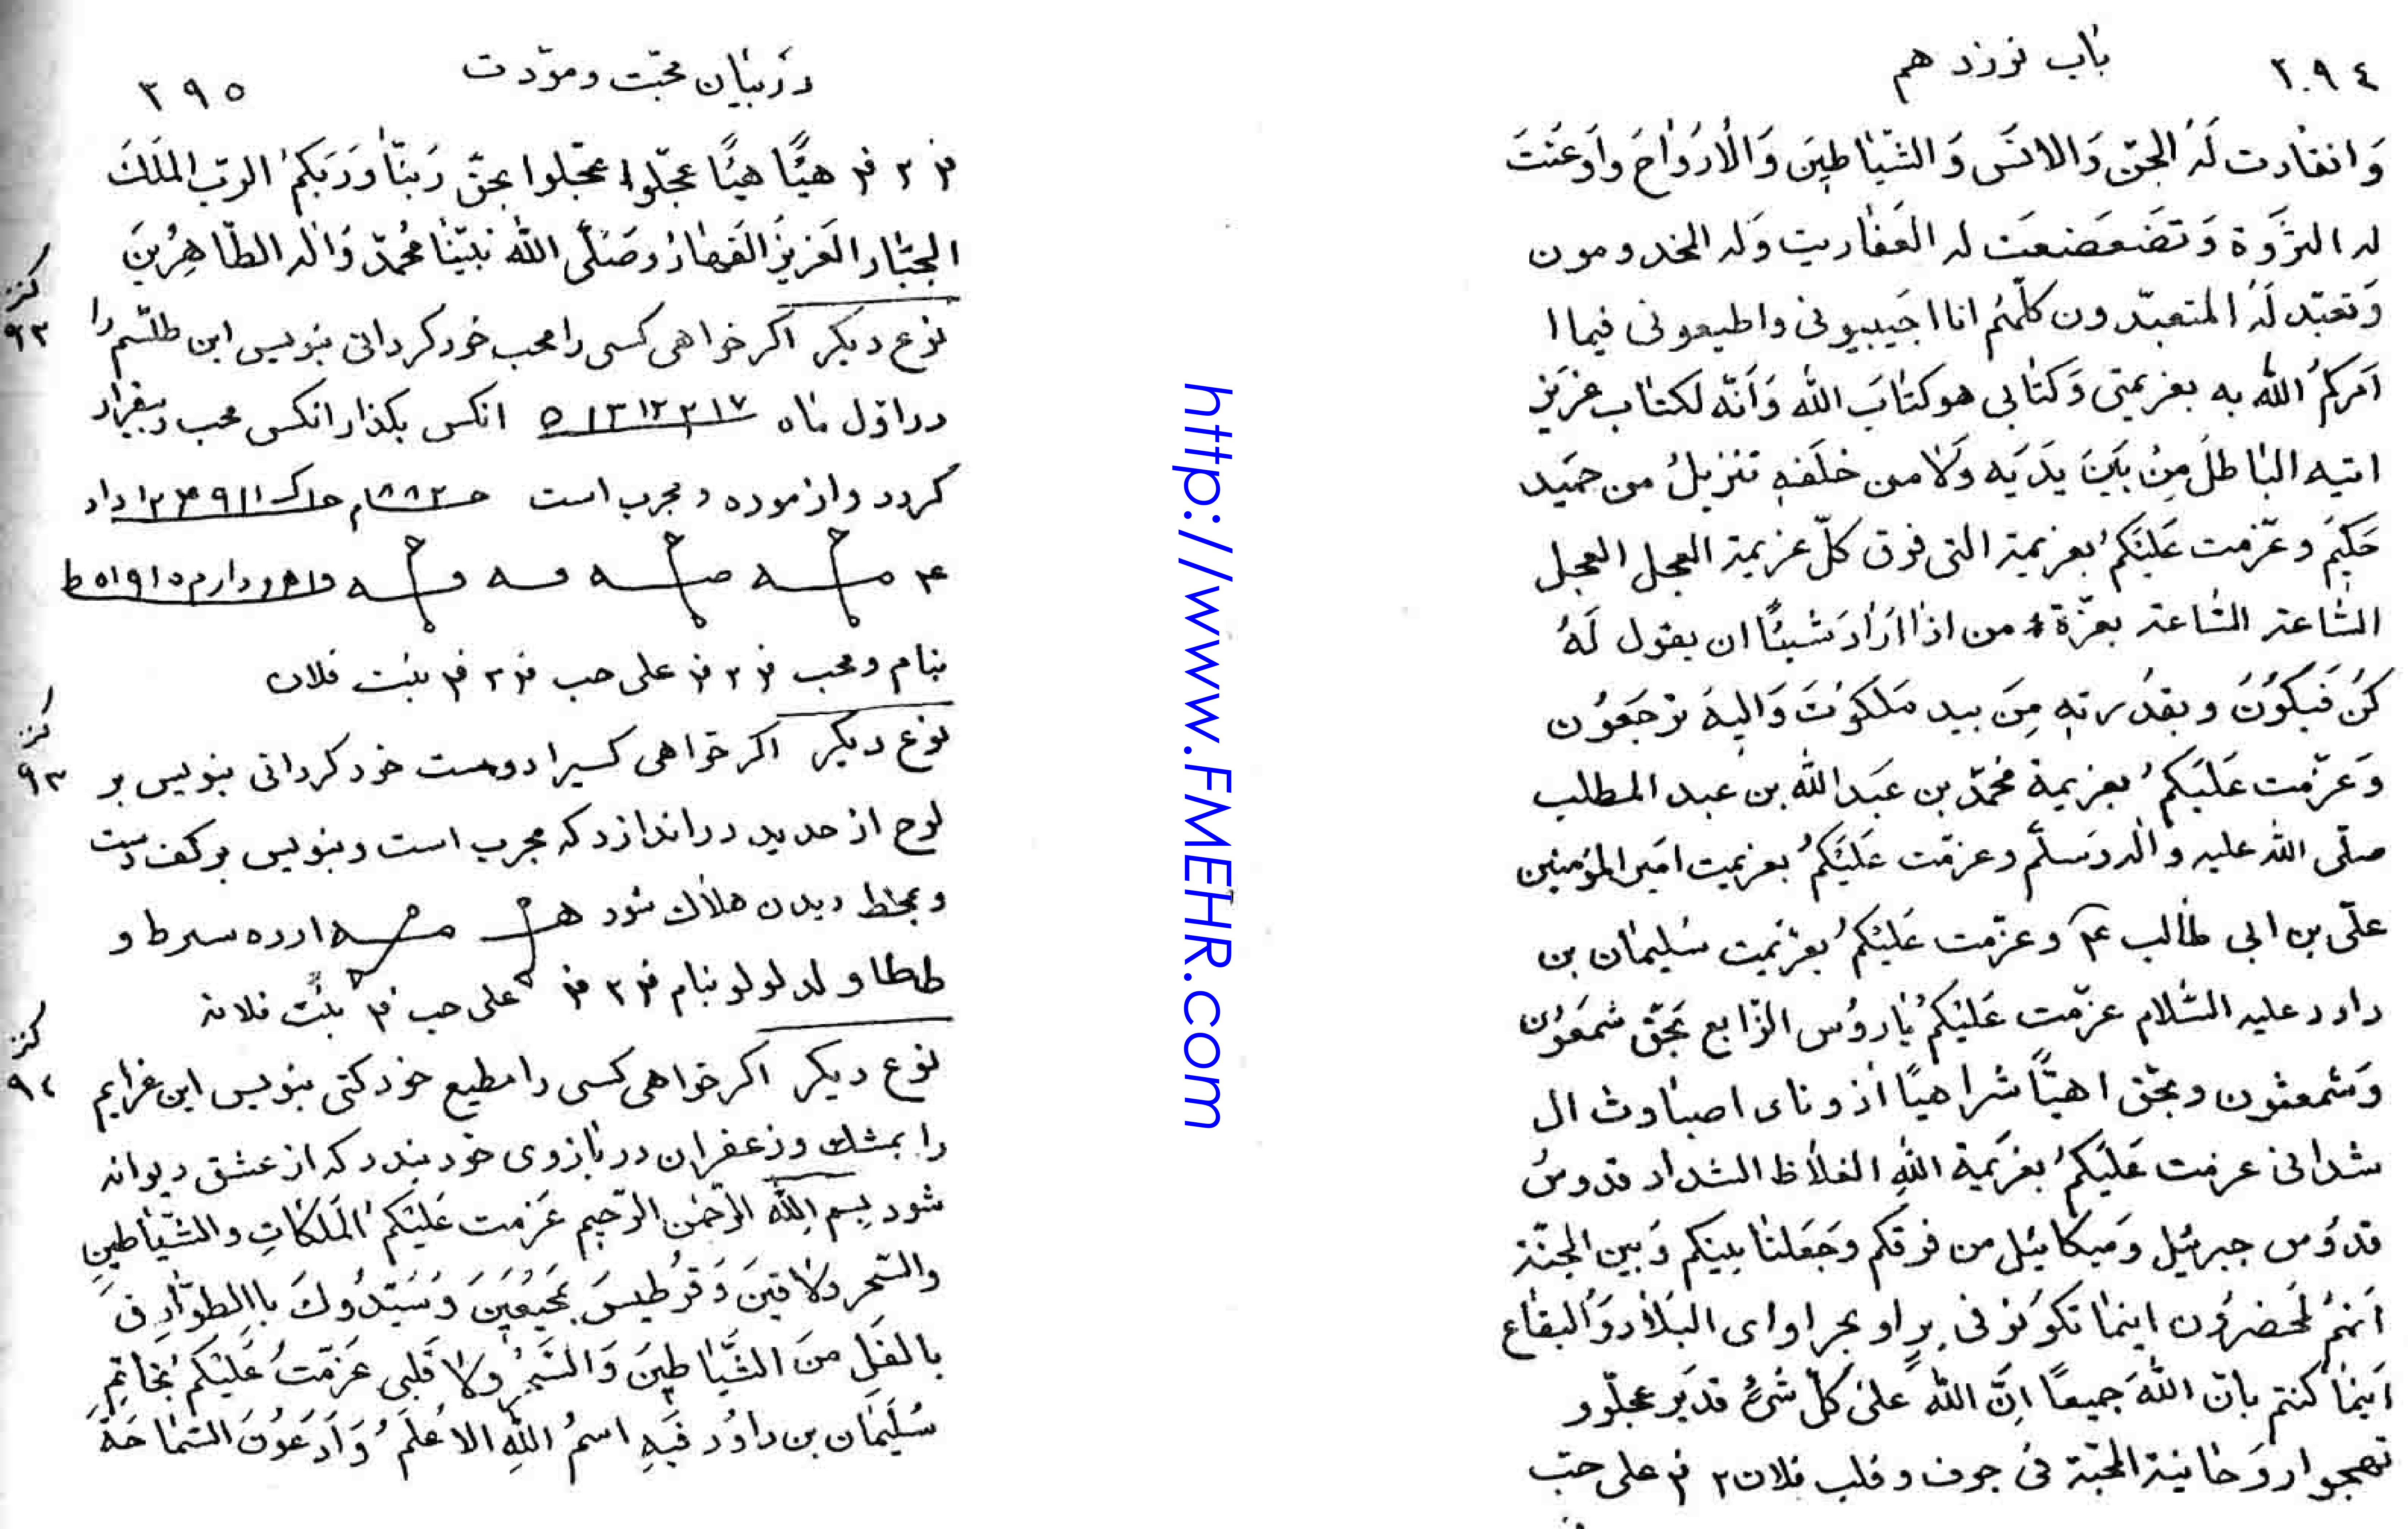 ٣٩٤ باب نوزدهم
وَانقادت لَهُ الجنّ وَالانسَ وَالشّیاطینَ وَالْارَوٰاحَ وَاَوعَنَتَ
له البَرَّوة وَتضَعضَعَت له العَفٰاریت وَله المخدومون
وَتعبّد لَهُ المتعبّدون کلّهُم انا اجَیبیونی واطیعونی فیما ا
اَمَرکمُ الله به بعزیمتی وَکتابی هو کتابَ الله وَاَنّه لکتاب عزیز
اتیه الباطلُ مِنْ بَیَنَ یدَیَه وَلامن خلَفهِ تنزیلُ من حمَید
حَکیَم وعَزّمت عَلَیَکمُ بعزیمة التی فوق کلّ عزیمة العجل العجل
السّٰاعة السّاعة بعزّة من اذا ارَادَ شیئًا ان یقول لَهُ
کنَ فَیکَوُنَ وبقدُرته مِنَ بید مَلکوُتَ وَالیه ترجَعوُن
وَعَزّمت عَلیَکمُ بعزیمة محُمّد بن عَبَدالله بن عبد المطلب
صلّی الله علیه والٰه وَسلّم وعزمّت عَلیَکمُ بعزیمت امَیرالمؤمنین
علیّ بن ابی طالب ع وعزّمت عَلیَکمُ بعزیمت سُلیمان بن
داود علیه السّلام عزّمت عَلیَکمُ یٰاروُس الرّابع بحَقّ شمعَوُن
وَشمعثون وبحقّ اهیّاً شراهیًا اذوناى اصبٰاوث ال
شداٰنی عزمت عَلیکمُ بعزیَمة اللهِ الغلٰاظ الشداد قدوسُ
قدوُس جبرئیل وَمَیکائیل من فوقکم وَجَعَلنا بینکم وَبین الجنّة
اَنهمُ لمَحضرُون اینمٰا تکوَنو فی بر او بحر اوای البلٰاد وَالبقاع
اَینمٰا کنتم بانّ اللهَ جمیعًا اِنَّ اللهَ عَلیٰ کلّ شیءٍ قدَیر عجلّوو
تهیجوا روَحانیة المحبّة فی جوف وقلب فلان ٢ فر علی حبّ
در بیٰان محبّت ومودّت ٣٩٥
فر ٢ فر هیًّا هیًّا عجّلوا عجّلوا بحقّ رَبنّا وَرَبکمُ الربّ المَلَکَ
الجبّار العَزیز القَهّارُ وَصَلّی الله نبَیّنا محُمّد وَاٰله الطّاهِرُینَ
نوع دیکر اکر خواهی کسی را محب خود کردانی بنویس این طلسّم را
کنز ٩٢
در اوّل ماه ٥١٣١٢٢١٧ انکس بکذار انکس محب وبیقرار
کردد وازموده ومجرب است
بنام ومحب فر ٢ فر علی حب فر ٢ فر بنت فلان
نوع دیکر اکر خواهی کسیرا دوست خود کردانی بنویس بر
کنز ٩٣
لوح از حدید در اندازد که مجرب است وبنویس بر کف دست
وبمحظ دیدن هلٰاک شود ارده سرط و
ططا و لد لولو بنام فر ٣ فر علی حب فر بنُت فلانه
نوع دیکر اکر خواهی کسی را مطیع خود کنی بنویس این عزایم
کنز ٩٤
را بمشک وزعفران در بازوی خود بندد که از عشق دیوانه
شود بِسم اللهِ الرّحمن الرّحیم عَزمت عَلیَکمُ الَملکَاتِ والشّیَاطین
والسّحر وَلاقیَن وَقرُطیسَ بجَیعَیَنَ وَسَیَتدُوکَ باالطوّادِ فیَ
بالفَلِ منَ الشّیَاطِینَ وَالسّحُر وَلا قَلبی عَزمّتُ عَلَیَکمُ بخَاتَمِ
سُلیَمٰان بن داوُد فیَهِ اسمُ اللهِ الاعَلَمُ وَاَدعَوُنَ السّمٰاحَةَ
http://www.FMEHR.com